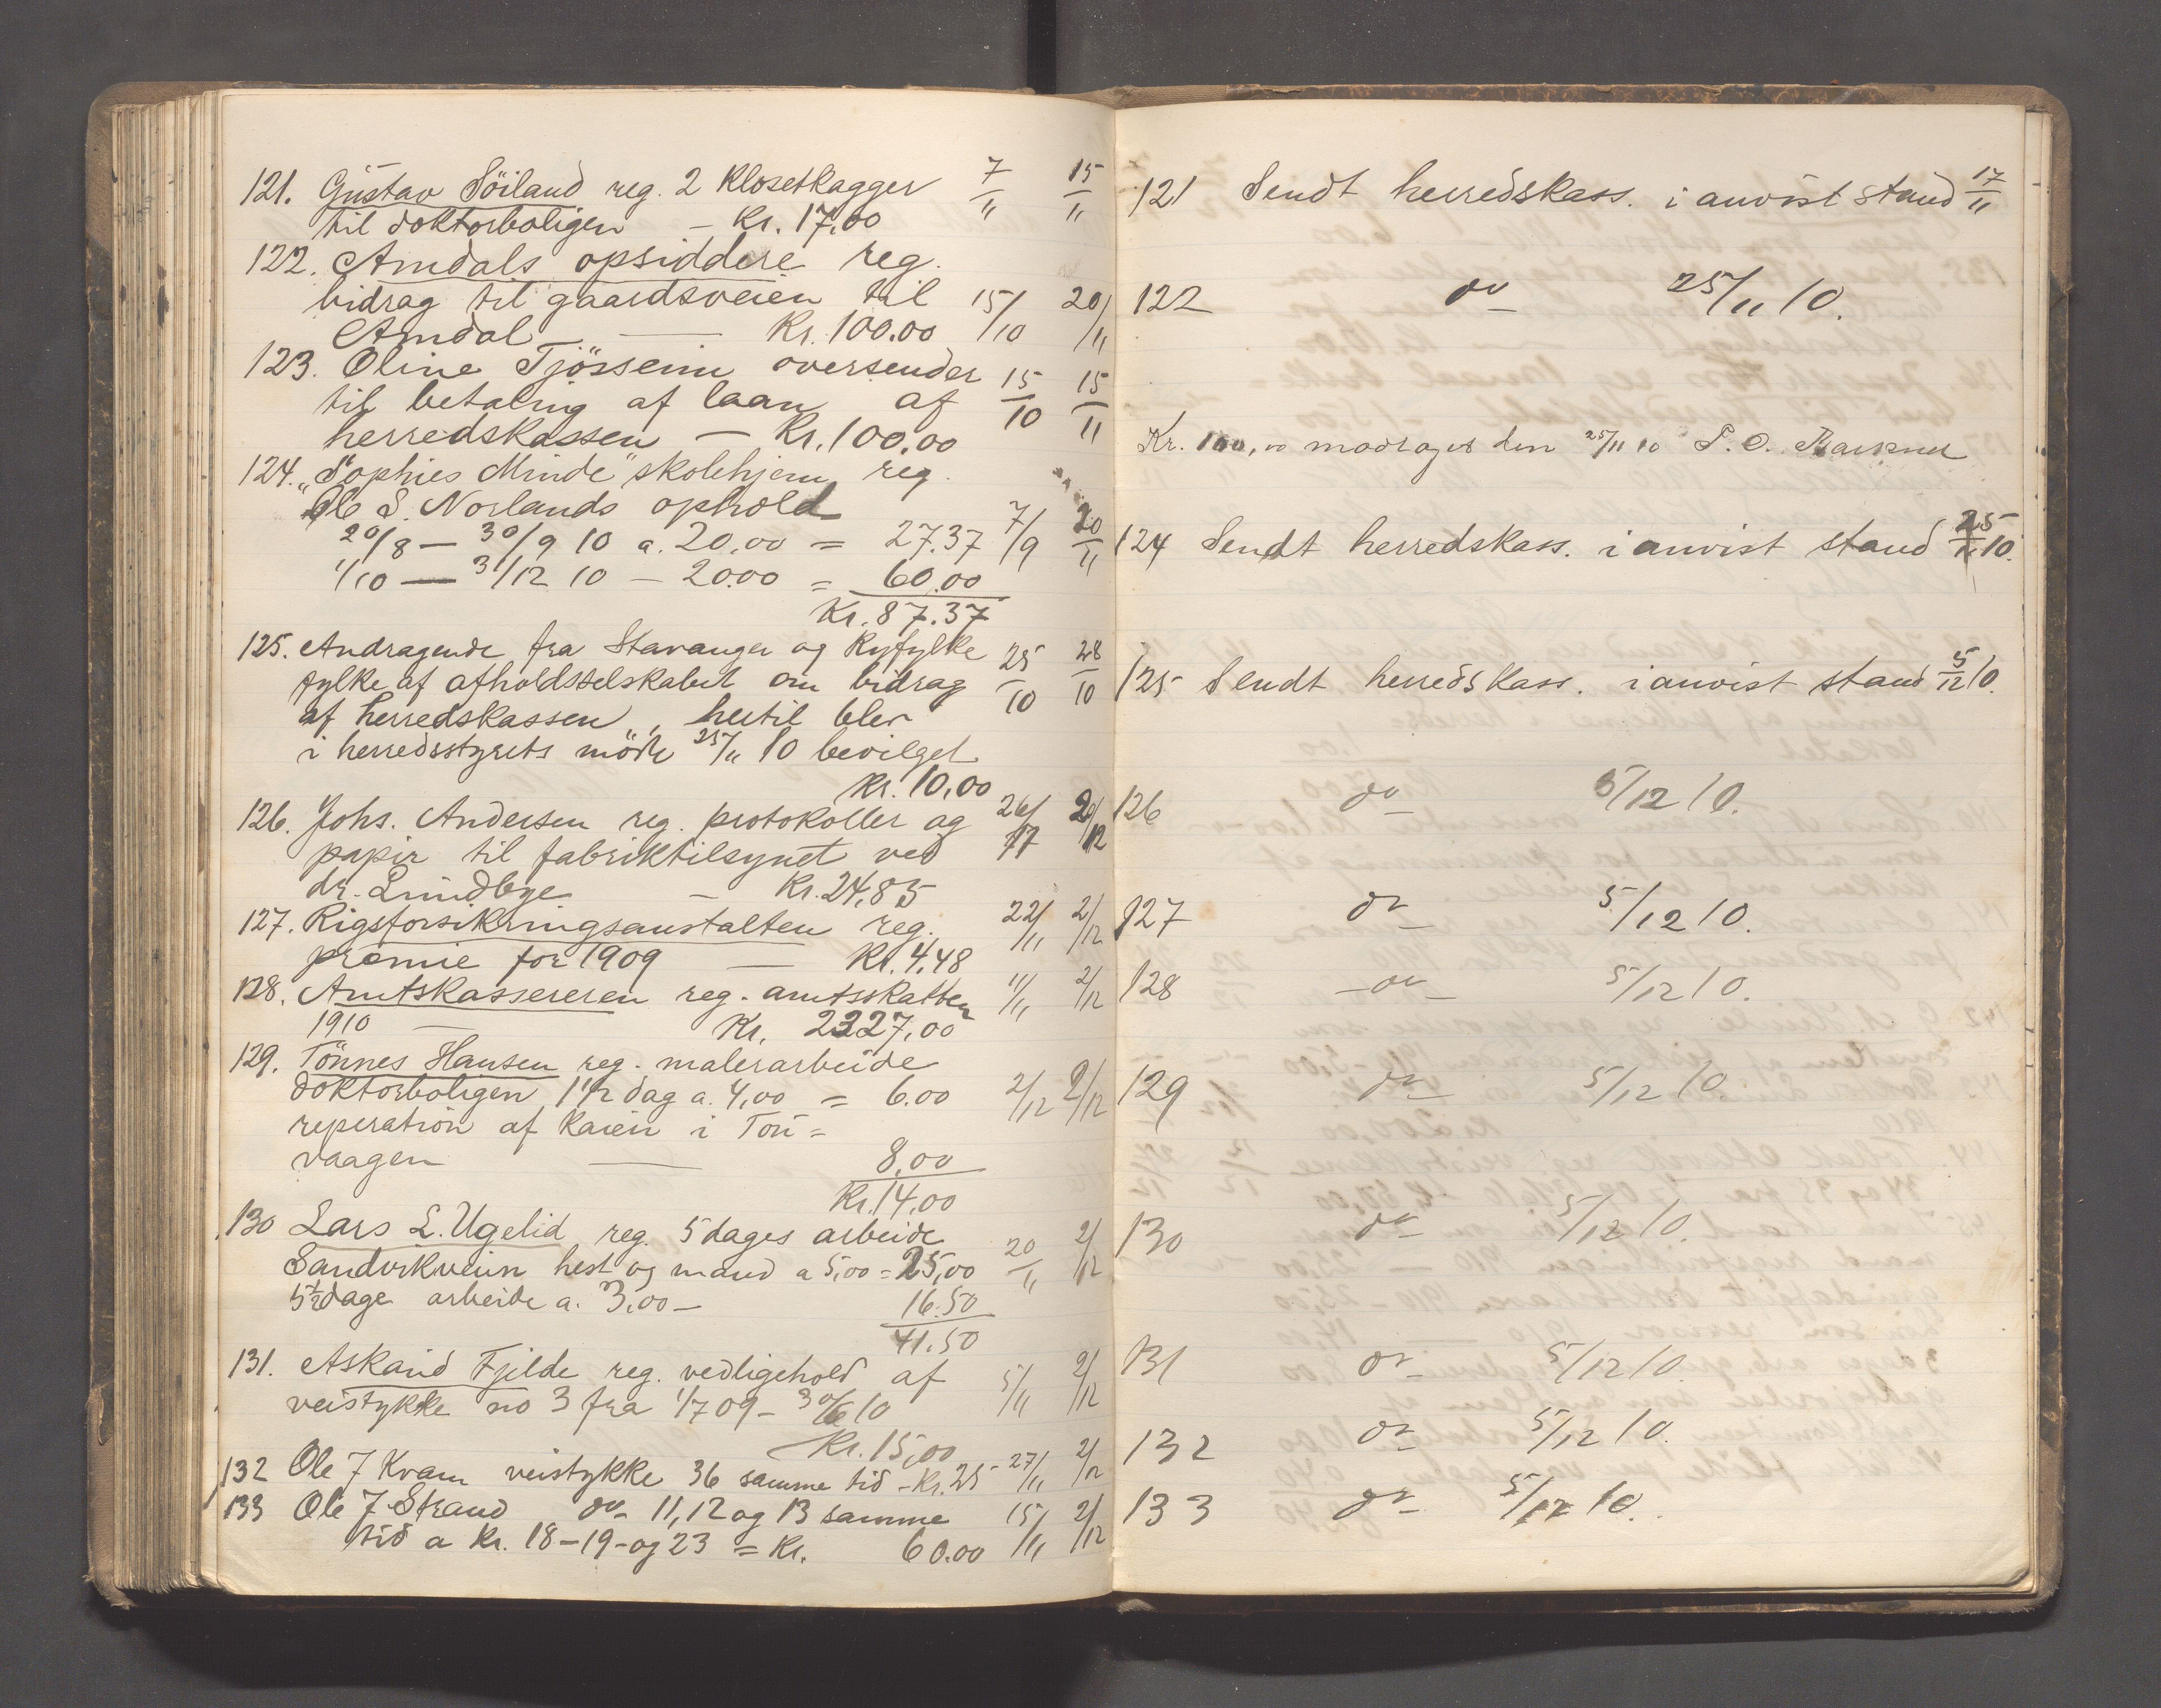 121. Gustav Söiland reg. 2 Klosetkagger 7/11 15/11
til doktorboligen – Kr. 17,00
122. Amdals opsiddere reg.
bidrag til gaardsveien til 15/10 20/11
Amdal — Kr. 100.00
123. Oline Tjössem oversender 15/10 15/11
til betaling af laan af
herredskassen — Kr. 100,00
124. "Sophies Minde" skolehjem reg.
Ole S. Norlands ophold 7/9 20/11
20/8 — 30/9 10 a. 20,00 = 27.37
1/10 — 31/12 10 – 20.00 = 60.00
Kr. 87.37
125. Andragende fra Stavanger og Ryfylke 25/10 28/10
fylke af afholdsselskabet om bidrag
af herredskassen, hertil blev
i herredsstyrets möde 25/11 10 bevilget
Kr. 10,00
126. Johs. Andersen reg. protokoller og 26/11 2/12
papir til fabriktilsynet ved
dr. Lindbye – Kr. 24,85
127. Rigsforsikringsanstalten reg. 22/11 2/12
premie for 1909 — Kr. 4,48
128. Amtskassereren reg. amtsskatten 11/11 2/12
1910 — Kr. 2227,00
129. Tönnes Hansen reg. malerarbeide
doktorboligen 1 1/2 dag a. 4,00 = 6.00 2/12 2/12
reperation af Kaien i Ton=
vaagen — 8,00
Kr. 14,00
130 Lars L. Ugelid reg. 5 dages arbeide 20/11 2/12
Sandvikveien hest og mand a 5,00 = 25,00
5 1/2 dage arbeide a. 3,00 – 16.50
41.50
131. Askaid Fjilde reg. vedligehold af 5/11 2/12
veistykke no 3 fra 1/7 09 – 30/6 10
Kr. 15,00
132 Ole J Kvam veistykke 36 samme tid – Kr. 25 27/11 2/12
133 Ole J. Strand do – 11, 12 og 13 samme 15/11 2/12
tid a Kr. 18 – 19 – og 23 = Kr. 60.00
121 Sendt herredskass. i anvist stand 17/11
122 do 25/11 10.
Kr. 100,00 modtaget den 25/11 10 T. O.
124 Sendt herredskass. i anvist stand 25/11 10.
125 Sendt herredskass. i anvist stand 5/12 10.
126 do 5/12 10.
127 do 5/12 10.
128 – do – 5/12 10.
129 do 5/12 10.
130 do 5/12 10.
131 do – 5/12 10.
132 do 5/12 10.
133 do 5/12 10.